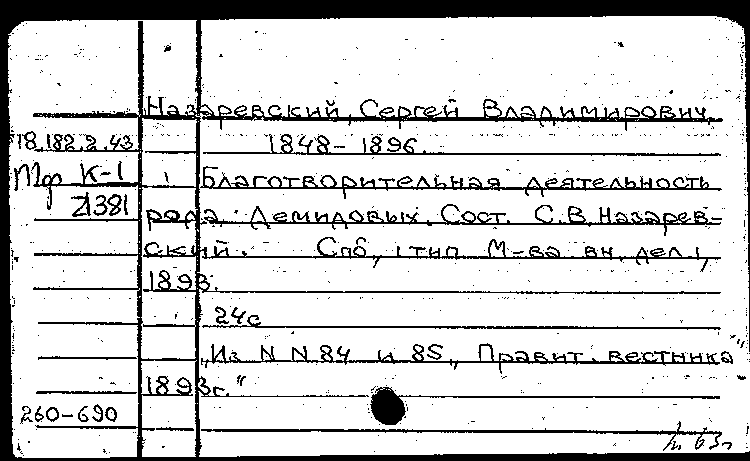 Назаревский, Сергей Владимирович,
18.182.2.43 1848-1896.
Мф К-1 Благотворительная деятельность
Z1381 рода Демидовых. Сост. С.В. Назарев-
ский. Спб, тип М-ва вн. дел,
1893.
24с
„Из N N 84 и 85 „Правит. вестника"
1893г."
260-690
63г